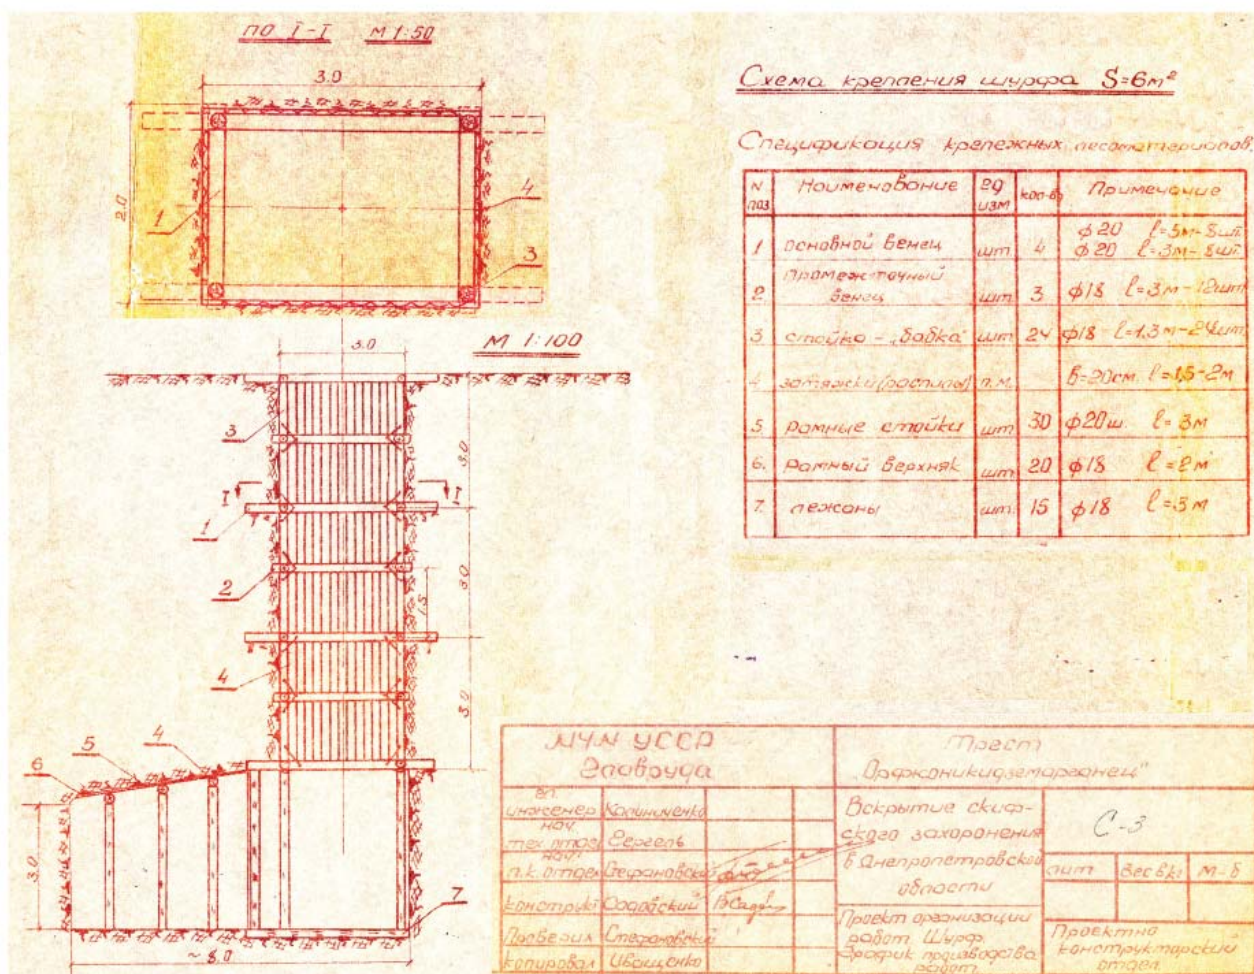 по I-I М 1:50
3.0
2.0
1
4
3
М 1:100
3.0
3
3.0
I I
1
2
3.0
1.5
4
3.0
5
4
6
3.0
7
~8.0
Схема крепления шурфа S=6м²
Спецификация крепежных лесоматериалов.
N поз Наименование ед изм кол-во Примечание
1 основной венец шт 4 ф20 l=5м-8шт
ф20 l=3м-8шт
2 промеж-точный венец шт 3 ф18 l=3м-12шт
3 стойка-„бабка" шт 24 ф18 l=1.3м-24шт
4 затяжки(распилы) п.м. в=20см. l=1,5-2м
5. рамные стойки шт 30 ф20ш. l=3м
6. рамный верхняк шт. 20 ф18 l=2м
7. лежаны шт. 15 ф18 l=3м
МЧМ УССР
Главруда
Трест
„Орджоникидземарганец"
гл. инженер Калиниченко
нач. тех.отдел Сергель
нач. п.к.отдел Стефановский
конструкт Садовский ВСадов
Проверил Стефановский
копировал Иващенко
Вскрытие скиф-
ского захоронения
в Днепропетровской
области
С-3
лит вес в кг М-б
Проект организации
работ. Шурф.
График производства
работ.
Проектно
конструкторский
отдел